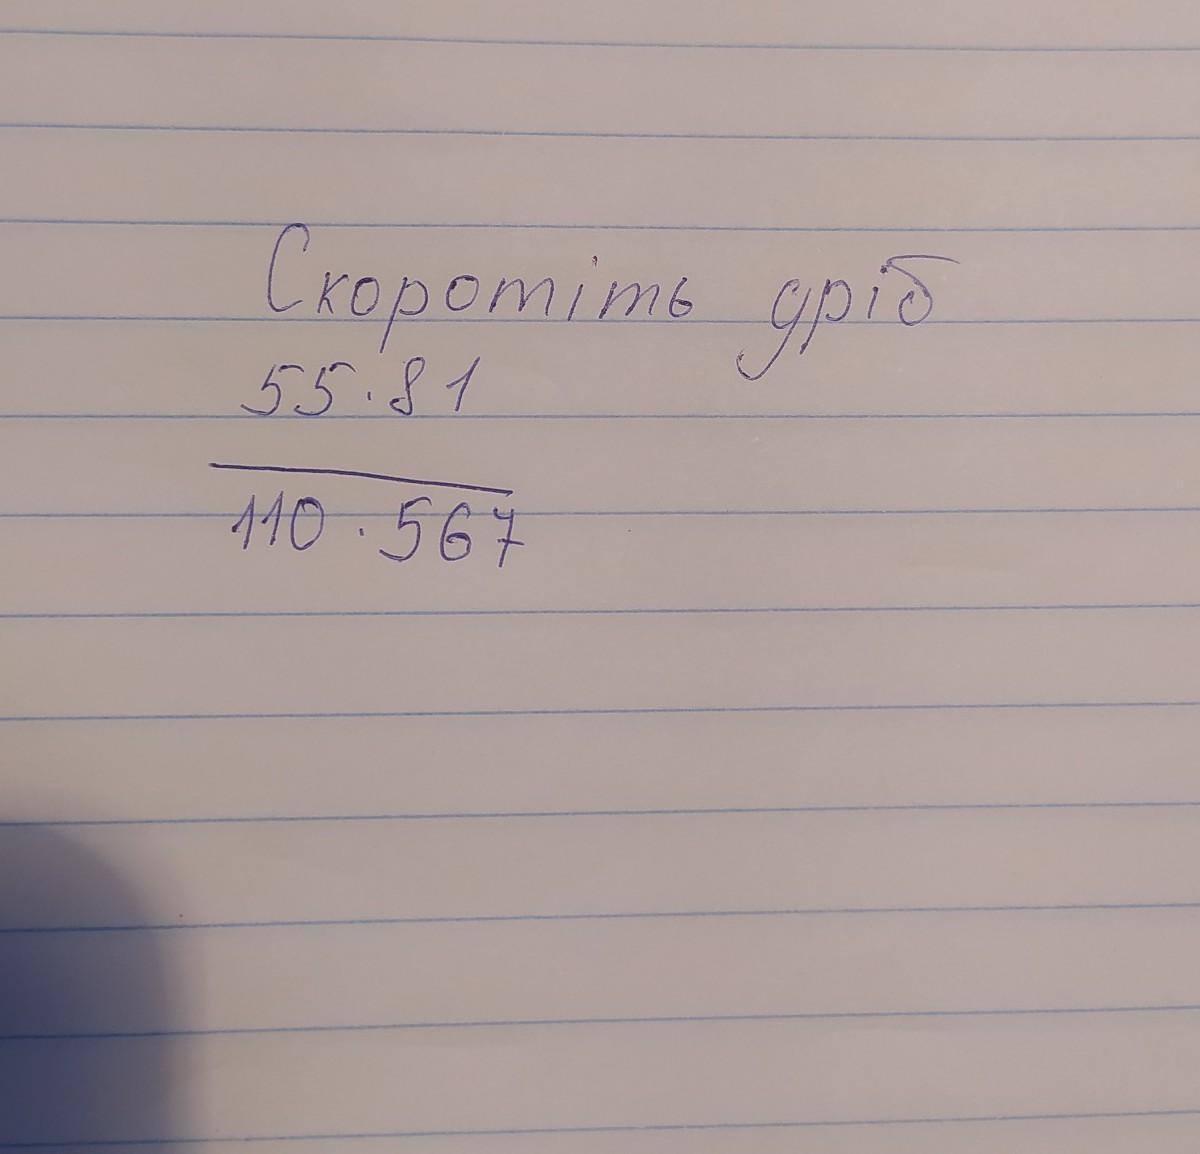 Скоротіть дріб
55·81
110·567